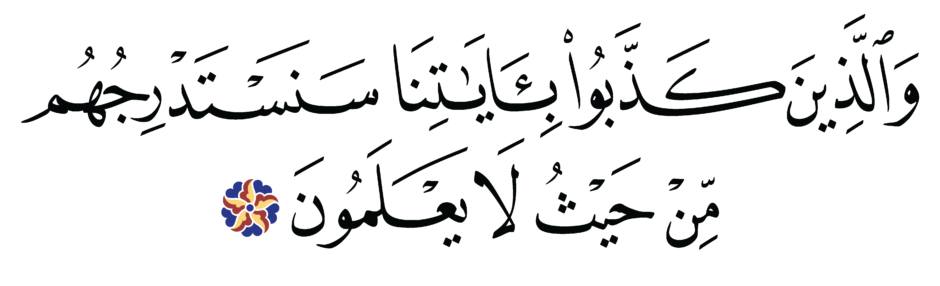 وَٱلَّذِينَ كَذَّبُوا۟ بِـَٔايَـٰتِنَا سَنَسْتَدْرِجُهُم
مِّنْ حَيْثُ لَا يَعْلَمُونَ